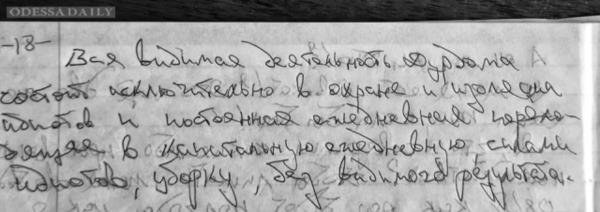 ODESSA DAILY
-18-
Вся видимая деятельность дурдома
состоит исключительно в охране и изоляции
идиотов и постоянная ежедневная
в капитальную ежедневную, силами
идиотов, уборку, без видимого результата.